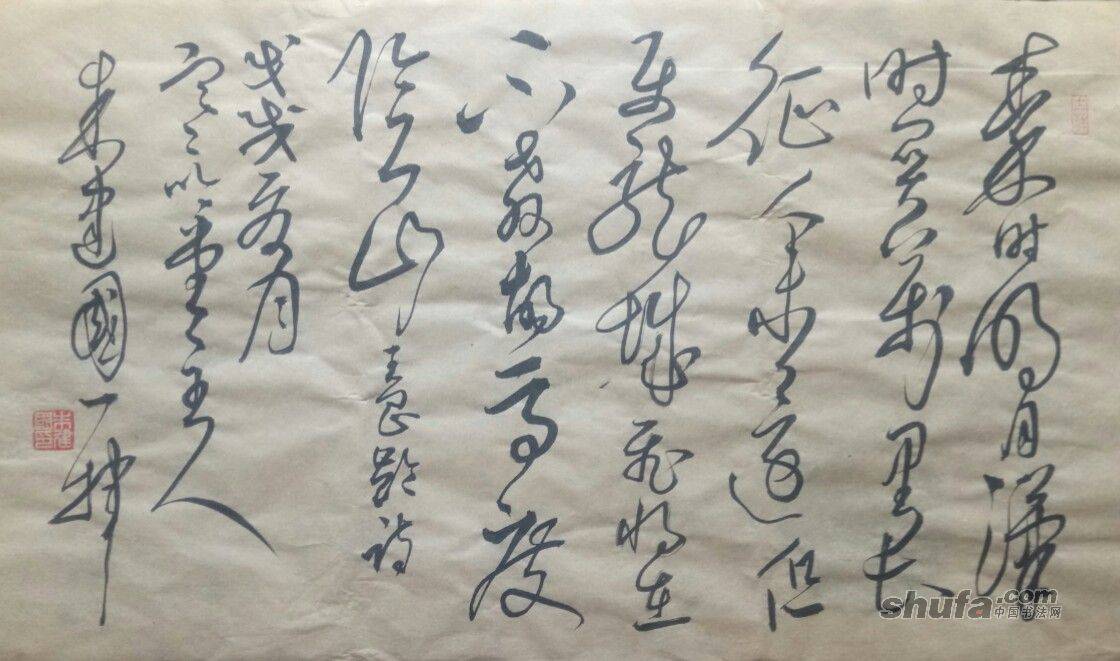 秦时明月漢
时関万里长
征人未还但
使龙城飞将在
不教胡马度
阴山 王昌龄诗
戊戌夏月
堂主人
朱建國一
shufa.com
中国书法网